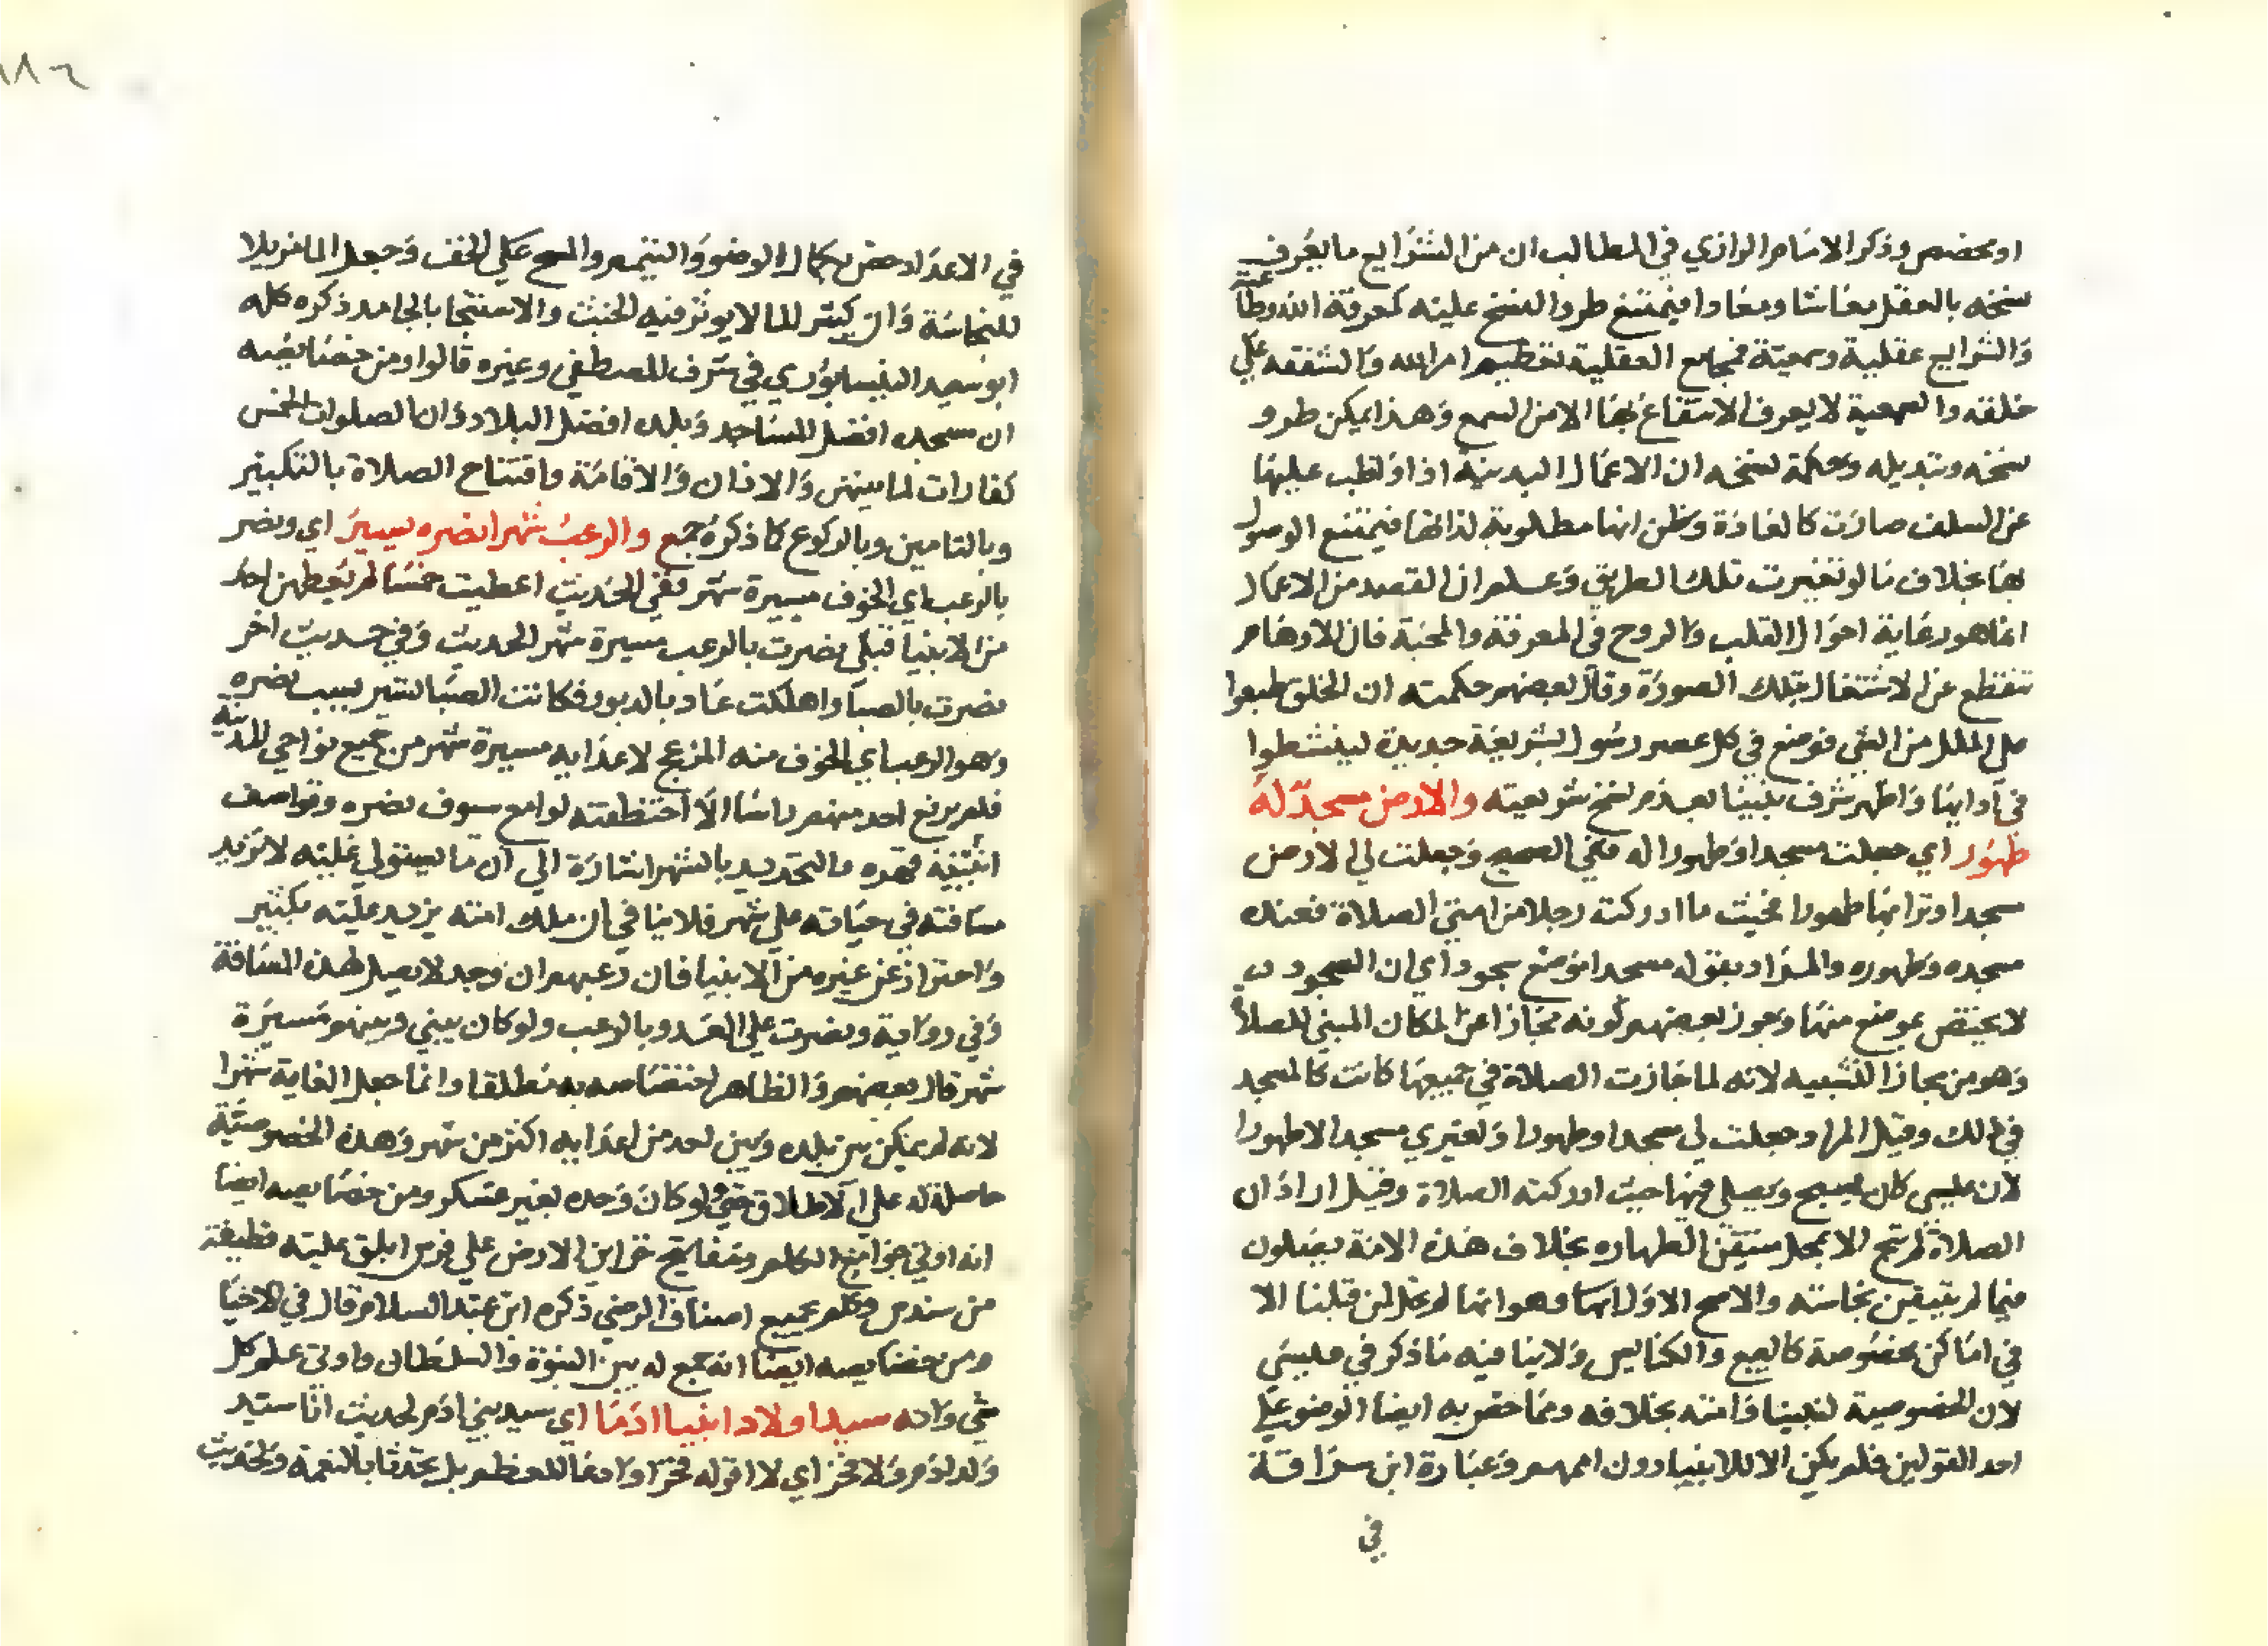 او مخصص وذكر الامام الرازي في المطالب ان من الشرايع ما يعرف
نسخه بالعقل معاشا ومعادا فيمتنع طرو النسخ عليه كمعرفة الله وطاعته
والشرايع عقلية وسمعية فمجامع العقلية تعظيم امر الله والشفقه على
خلقه والسمعية لا يعرف الانتفاع بها الا من السمع وهذا يمكن طرو
نسخه وتبديله وحكمة نسخه ان الاعمال البدنية اذا واظب عليها
عن السلف صارت كالعادة وظن انها مطلوبة لذاتها فيمتنع الوصول
بها بخلاف ما لو تغيرت تلك الطريق وعلم ان القصد من الاعمال
انما هو رعاية احوال القلب والروح في المعرفة والمحبة فان الاوهام
تنقطع عن الاشتغال بتلك الصورة وقال بعضهم حكمته ان الخلق طبعوا
على الملل من الشي فوضع في كل عصر رسول بشريعة جديدة لينشطوا
في ادايها واظهر شرف نبينا بعدم نسخ شريعته والارض مسجد له
طهور اي جعلت مسجدا وطهورا له ففي الصحيح وجعلت لي الارض
مسجدا وترابها طهورا بحيث ما ادركت رجلا من امتي الصلاة فعنده
مسجده وطهوره والمراد بقوله مسجدا موضع سجود اي ان السجود
لا يختص بموضع منها وجوز بعضهم كونه مجازا عن المكان المبني للصلاة
وهو من مجاز التشبيه لانه لما جازت الصلاة في جميعها كانت كالمسجد
في ذلك وقيل المراد جعلت لي مسجدا وطهورا ولغيري مسجدا لا طهورا
لان عيسى كان يسيح ويصلي فيها حيث ادركته الصلاة وقيل اراد ان
الصلاة لم تبح الا بمحل متيقن الطهاره بخلاف هذه الامة يصلون
فيما لم تتيقن نجاسته والاصح الاول انها وهو انها لم تحل لمن قبلنا الا
في اماكن مخصوصة كالبيع والكنايس ولا ينافيه ما ذكر في عيسى
لان الخصوصية لنبينا وامته بخلافه ومما خص به ايضا الوضو على
احد القولين فلم يكن الا للانبيا دون اممهم وعبارة ابن سراقة
في
في الاعداد خص بكمال الوضو والتيمم والمسح على الخف وجعل الما مزيلا
للنجاسة وان كثير الما لا يوثر فيه الخبث والاستنجا بالجامد ذكره كله
ابو سعيد النيسابوري في شرف المصطفى وغيره قالوا ومن خصايصه
ان مسجده افضل المساجد وبلده افضل البلاد وان الصلوات الخمس
كفارات لما بينهن والاذان والاقامة وافتتاح الصلاة بالتكبير
وبالتامين وبالركوع كما ذكره جمع والرعب شهرا نصره يسير اي ونصر
بالرعب اي الخوف مسيرة شهر ففي الحديث اعطيت خمسا لم يعطهن احد
من الانبيا قبلي نصرت بالرعب مسيرة شهر الحديث وفي حديث اخر
نصرت بالصبا واهلكت عاد بالدبور فكانت الصبا تسير بسبب نصره
وهو الرعب اي الخوف منه المزعج لاعدايه مسيرة شهر من جميع نواحي المدينة
فلم يرفع احد منهم راسا الا اختطفته لوامع سيوف نصره وقواصف
قهره والتحديد بالشهر اشارة الى ان ما يستولي عليه لا تزيد
مسافته في حياته على شهر فلا ينافي ان ملك امته يزيد عليه بكثير
واحتراز عن غيره من الانبيا فان رعبهم ان وجد لا يصل لهذه المسافة
وفي رواية ونصرت على العدو بالرعب ولو كان بيني وبينهم مسيرة
شهر قال بعضهم والظاهر اختصاصه به مطلقا وانما جعل الغاية شهرا
لانه لم يكن بين بلده وبين احد من اعدايه اكثر من شهر وهذه الخصوصية
حاصلة له على الاطلاق حتى لو كان وحده بغير عسكر ومن خصايصه ايضا
انه اوتي جوامع الكلم ومفاتيح خزاين الارض على فرس ابلق عليه قطيفة
من سندس وكلم بجميع اصناف الوحي ذكره ابن عبد السلام قال في الاحيا
ومن خصايصه ايضا انه جمع له بين النبوة والسلطان واوتي علم كل
شي وانه سيد اولاد انبيا ادما اي سيد بني ادم لحديث انا سيد
ولد ادم ولا فخر اي لا اقوله فخرا وادعا للعظم بل تحدثا بالنعمة ولحديث